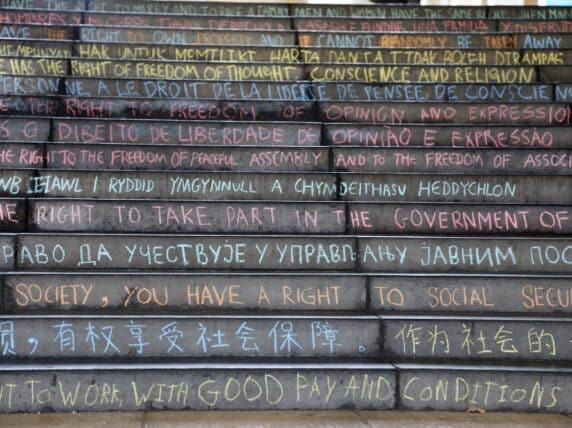 HT TO MARRY AND TO HAVE A MEN AND WOMEN HAVE THE SAME
HOMBRES Y MUJERES
HAVE THE RIGHT TO OWN AND CANNOT RANDOMLY BE TAKEN AWAY
HAK UNTUK MEMILIKI HARTA DAN IA TIDAK BOLEH DIRAMPAS
E HAS THE RIGHT OF FREEDOM OF THOUGHT, CONSCIENCE AND RELIGION
PERSONNE A LE DROIT DE LA LIBERTE DE PENSEE DE CONSCIENC
E THE RIGHT TO FREEDOM OF OPINION AND EXPRESSION
S O DIREITO DE LIBERDADE DE OPINIÃO E EXPRESSÃO
THE RIGHT TO THE FREEDOM OF PEACEFUL ASSEMBLY AND TO THE FREEDOM OF ASSOCI
WB HAWL I RYDDID YMGYNNULL A CHYMDEITHASU HEDDYCHLON
E RIGHT TO TAKE PART IN THE GOVERNMENT OF
РАВО ДА УЧЕСТВУЈЕ У УПРАВЉАЊУ ЈАВНИМ ПОС
SOCIETY, YOU HAVE A RIGHT TO SOCIAL SECU
员，有权享受社会保障。 作为社会的
HT TO WORK, WITH GOOD PAY AND CONDITIONS